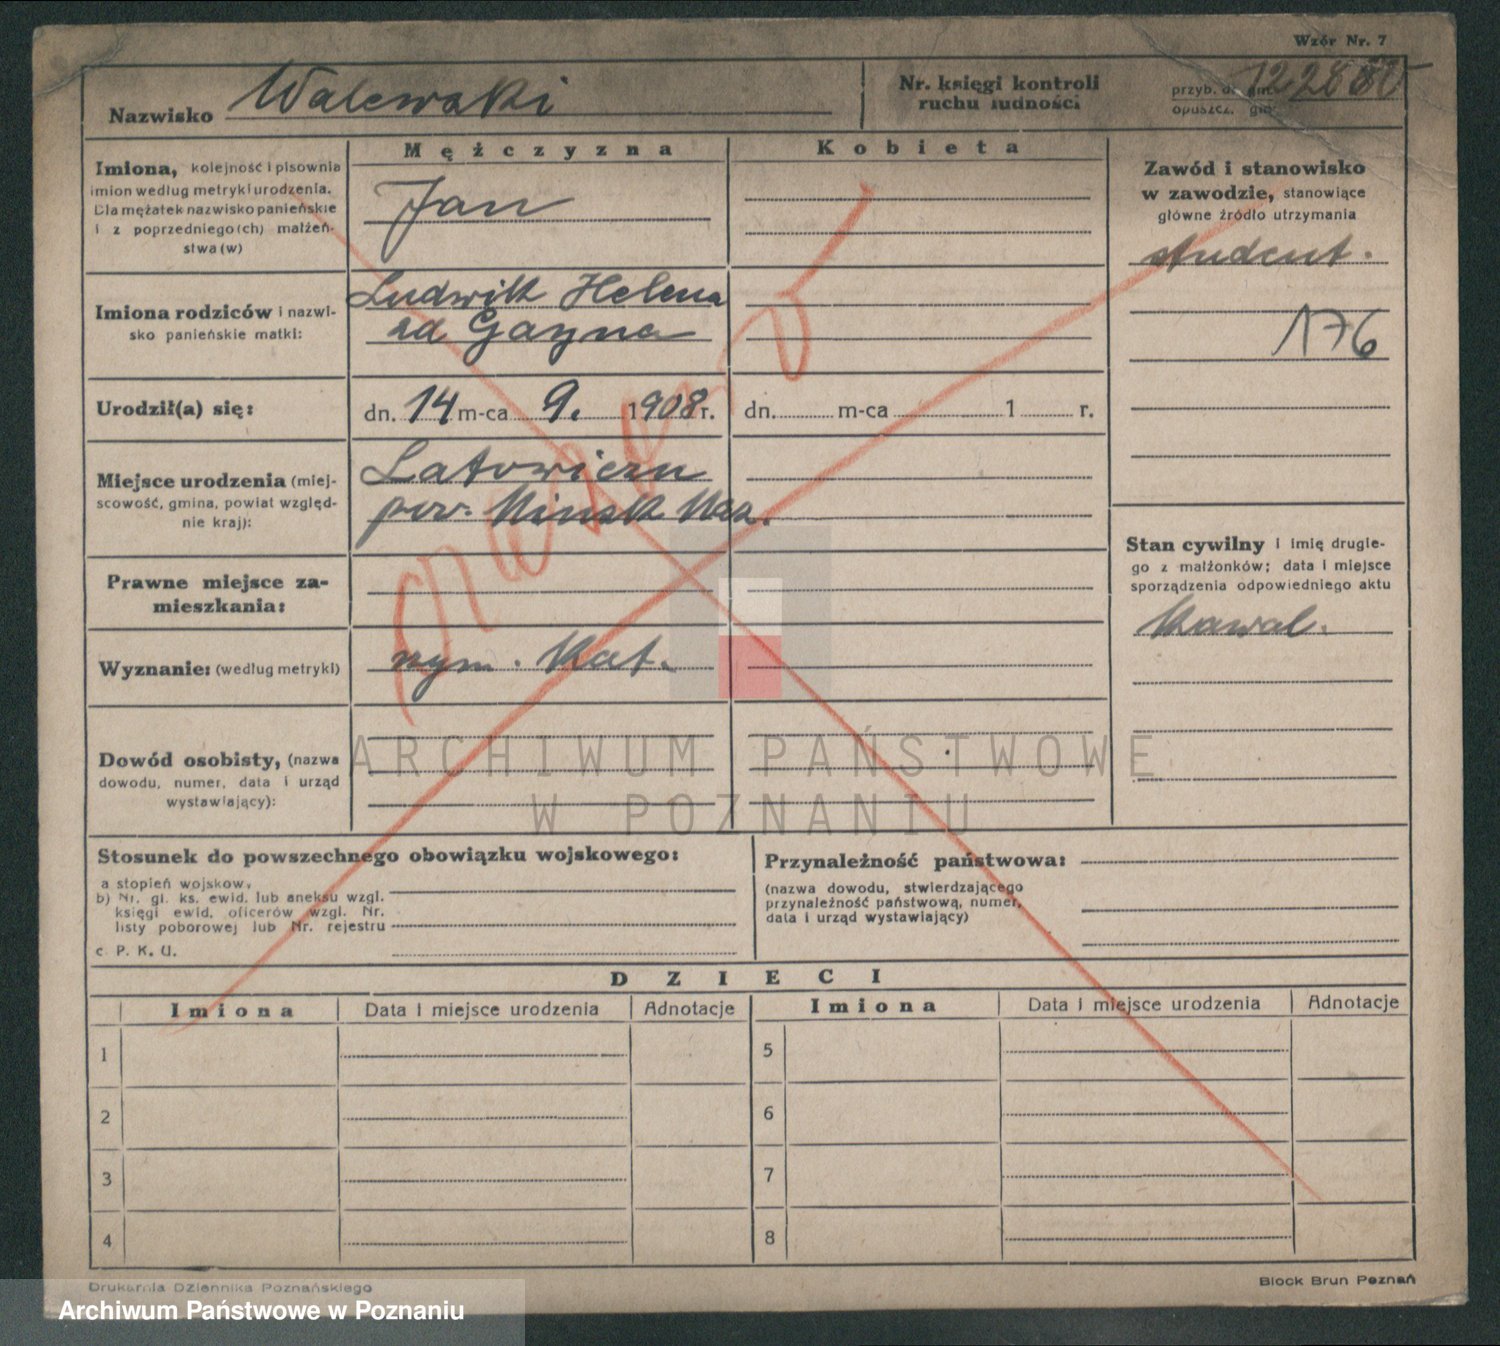 Wzór Nr. 7
Nazwisko Walewski
Nr. księgi kontroli
ruchu ludności
przyb. do gm.
opuszcz. gm.
Mężczyzna
Kobieta
Imiona, kolejność i pisownia
imion według metryki urodzenia.
Dla mężatek nazwisko panieńskie
i z poprzedniego(ch) małżeń-
stwa(w)
Jan
Zawód i stanowisko
w zawodzie, stanowiące
główne źródło utrzymania
student.
176
Imiona rodziców i nazwi-
sko panieńskie matki:
Ludwik Helena
zd Gayna
Urodził(a) się:
dn. 14 m-ca 9. 1908 r.
dn. m-ca 1 r.
Miejsce urodzenia (miej-
scowość, gmina, powiat względ-
nie kraj):
Latowiczu
pow. Minsk Maz.
Stan cywilny i imię drugie-
go z małżonków; data i miejsce
sporządzenia odpowiedniego aktu
Kawal.
Prawne miejsce za-
mieszkania:
Wyznanie: (według metryki)
rzym. Kat.
Dowód osobisty, (nazwa
dowodu, numer, data i urząd
wystawiający):
ARCHIWUM PAŃSTWOWE
W POZNANIU
Stosunek do powszechnego obowiązku wojskowego:
a stopień wojskow,
b) Nr. gl. ks. ewid. lub aneksu wzgl.
księgi ewid. oficerów wzgl. Nr.
listy poborowej lub Nr. rejestru
c P. K. U.
Przynależność państwowa:
(nazwa dowodu, stwierdzającego
przynależność państwową, numer,
data i urząd wystawiający)
DZIECI
Imiona Data i miejsce urodzenia Adnotacje Imiona Data i miejsce urodzenia Adnotacje
1 5
2 6
3 7
4 8
Drukarnia Dziennika Poznańskiego
Block Brun Poznań
Archiwum Państwowe w Poznaniu